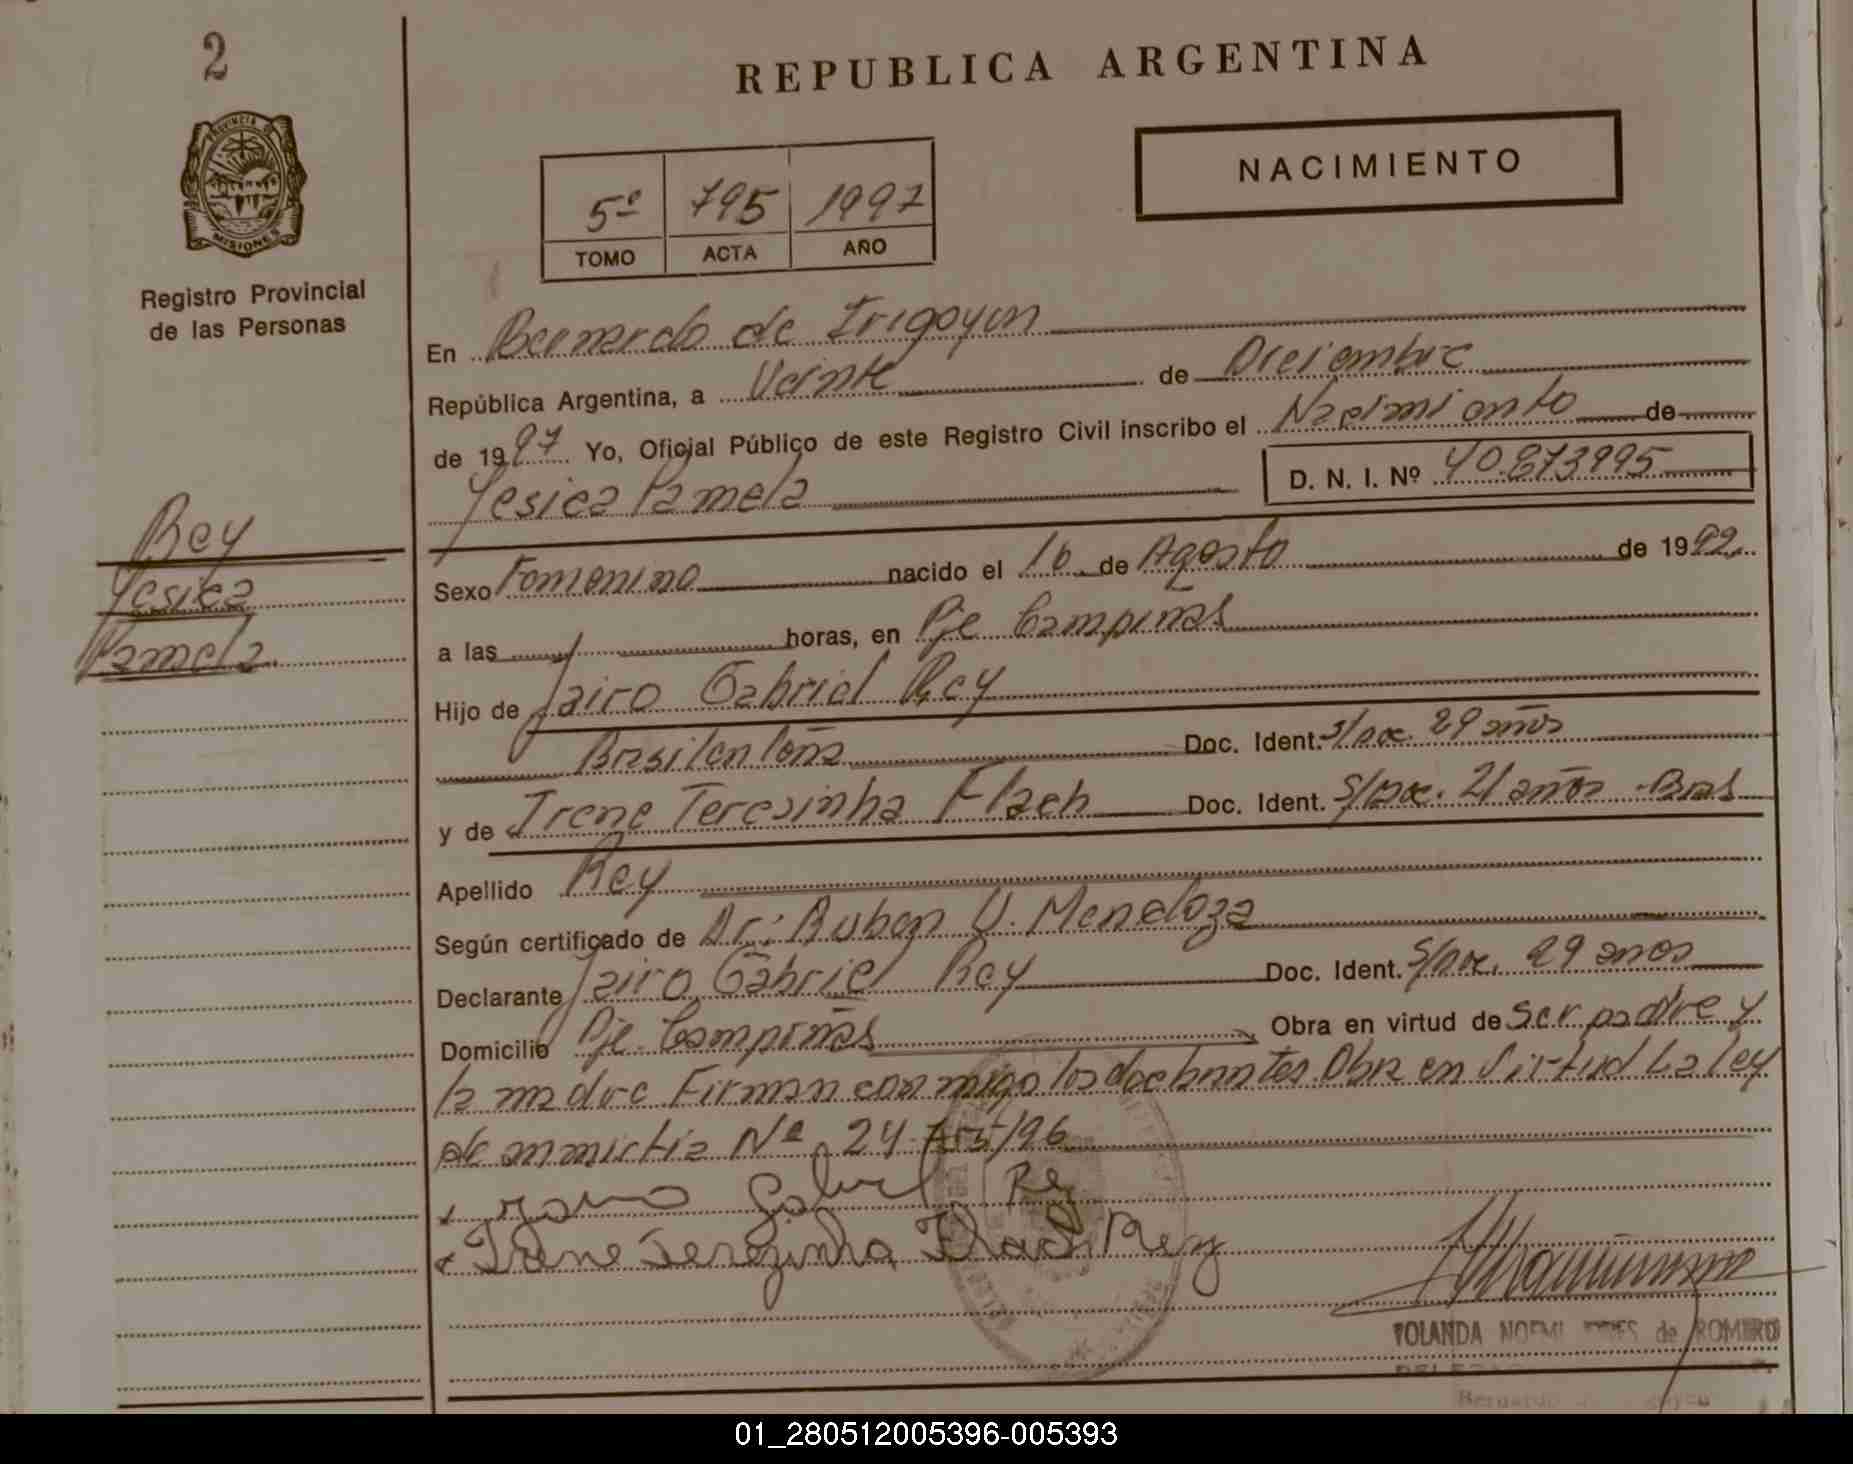 2
REPUBLICA ARGENTINA
PROVINCIA DE
MISIONES
Registro Provincial
de las Personas
NACIMIENTO
5º 795 1997
TOMO ACTA AÑO
En Bernardo de Irigoyen
República Argentina, a Veinte de Diciembre
de 1997 Yo, Oficial Público de este Registro Civil inscribo el Nacimiento de
D. N. I. Nº 40.873995
Yesica Pamela
Rey
Yesica
Pamela
Sexo Femenino nacido el 16 de Agosto de 1992
a las / horas, en Pje Campiñas
Hijo de Jairo Gabriel Rey
Brasilenloña Doc. Ident. S/Doc. 29 años
y de Irene Teresinha Flach Doc. Ident. S/Doc. 21 años - Bras
Apellido Rey
Según certificado de Dr: Ruben V. Mendoza
Declarante Jairo Gabriel Rey Doc. Ident. S/Doc. 29 anos
Domicilio Pje. Campiñas Obra en virtud de ser padre y
la madre Firman conmigo los Obra en Virtud La ley
de Nº 24 /96
Jairo Gabriel Rey
Irene Terezinha Flach Rey
YOLANDA NOEMI de ROMERO
Bernardo
01_280512005396-005393